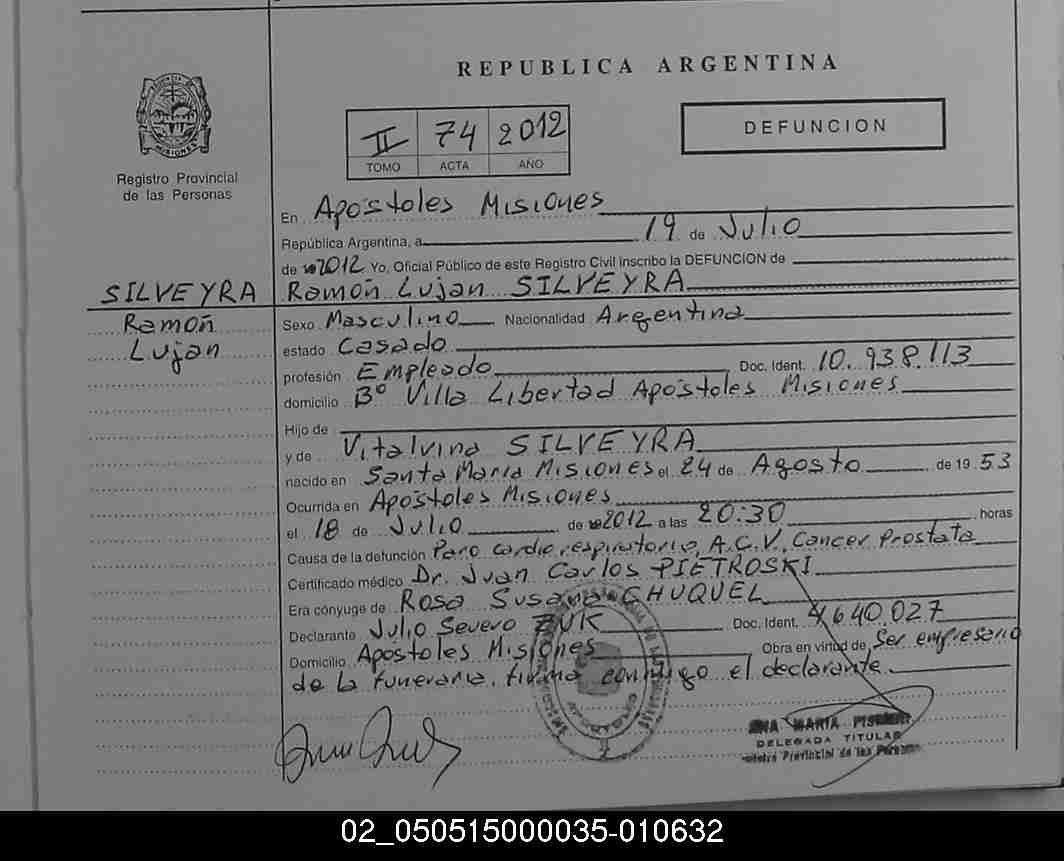 REPUBLICA ARGENTINA
PROVINCIA DE MISIONES
Registro Provincial
de las Personas
II 74 2012
TOMO ACTA AÑO
DEFUNCION
En Apóstoles Misiones
República Argentina, a 19 de Julio
de 2012 Yo, Oficial Público de este Registro Civil inscribo la DEFUNCION de
SILVEYRA Ramón Lujan SILVEYRA
Ramón Sexo Masculino Nacionalidad Argentina
Lujan estado Casado
profesión Empleado Doc. Ident. 10.938.113
domicilio Bº Villa Libertad Apóstoles Misiones
Hijo de
y de Vitalvina SILVEYRA
nacido en Santa Maria Misiones el 24 de Agosto de 1953
Ocurrida en Apóstoles Misiones
el 18 de Julio de 2012 a las 20:30 horas
Causa de la defunción Paro cardio respiratorio, A.C.V, Cancer Prostata
Certificado médico Dr. Juan Carlos PIETROSKI
Era cónyuge de Rosa Susana CHUQUEL
Declarante Julio Severo ZUK Doc. Ident. 4640.027
Domicilio Apostoles Misiones Obra en virtud de Ser empresario
de la funeraria, firma conmigo el declarante
ANA MARIA
DELEGADA TITULAR
Registro Provincial de las Personas
02_050515000035-010632